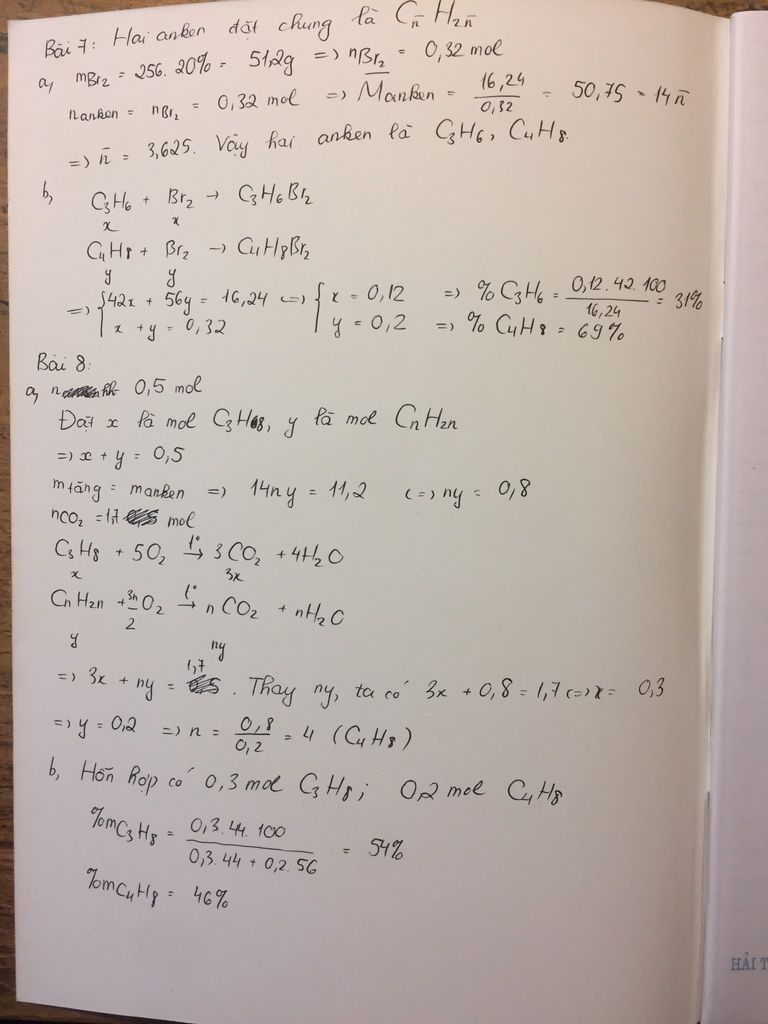 Bài 7: Hai anken đặt chung là Cn̄H2n̄
a, mBr2 = 256.20% = 51,2g => nBr2 = 0,32 mol
nanken = nBr2 = 0,32 mol => M̄anken = 16,24/0,32 = 50,75 = 14n̄
=> n̄ = 3,625. Vậy hai anken là C3H6, C4H8.
b,
C3H6 + Br2 → C3H6Br2
x x
C4H8 + Br2 → C4H8Br2
y y
=> { 42x + 56y = 16,24 <=> { x = 0,12 => % C3H6 = 0,12.42.100/16,24 = 31%
x + y = 0,32 y = 0,2 => % C4H8 = 69%
Bài 8:
a, nhh 0,5 mol
Đặt x là mol C3H8, y là mol CnH2n
=> x + y = 0,5
mtăng = manken => 14ny = 11,2 <=> ny = 0,8
nCO2 = 1,7 mol
C3H8 + 5O2 t°→ 3CO2 + 4H2O
x 3x
CnH2n + 3n/2 O2 t°→ nCO2 + nH2O
y ny
=> 3x + ny = 1,7. Thay ny, ta có 3x + 0,8 = 1,7 <=> x = 0,3
=> y = 0,2 => n = 0,8/0,2 = 4 (C4H8)
b, Hỗn hợp có 0,3 mol C3H8; 0,2 mol C4H8
%mC3H8 = 0,3.44.100/0,3.44 + 0,2.56 = 54%
%mC4H8 = 46%
HẢI T